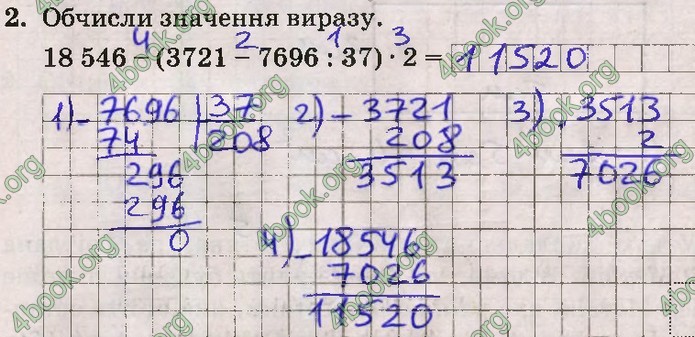 2. Обчисли значення виразу.
4 2 1 3
18 546 – (3721 – 7696 : 37) · 2 = 11520
1) - 7696 | 37 2) - 3721 3) · 3513
74 208 208 2
296 3513 7026
296
0 4) - 18546
7026
11520
4book.org